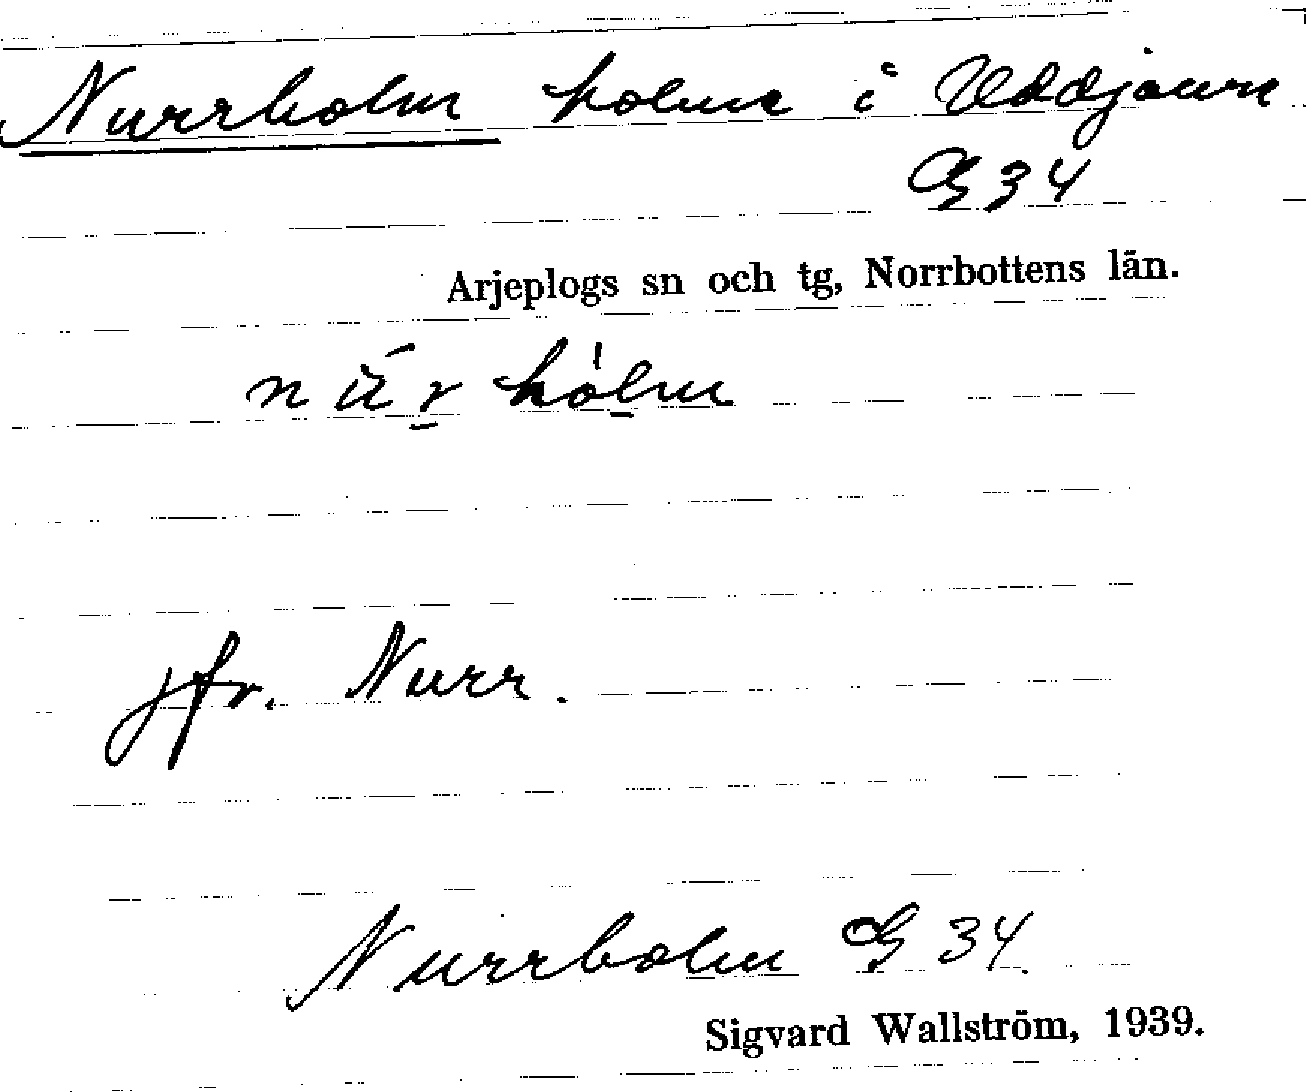 Nurrholm holme i Uddjaure
G 34
Arjeplogs sn och tg, Norrbottens län.
jfr. Nurr.
Nurrholm G 34
Sigvard Wallström, 1939.